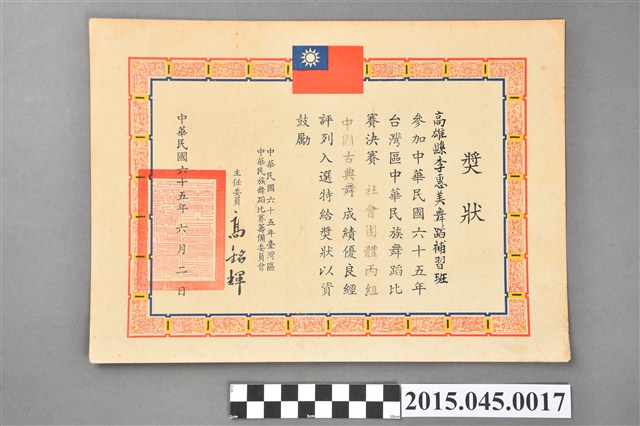 獎狀
高雄縣李惠美舞蹈補習班
參加中華民國六十五年
台灣區中華民族舞蹈比
賽決賽 社會團體丙組
中國古典舞 成績優良經
評列入選特給獎狀以資
鼓勵
中華民國六十五年臺灣區
中華民族舞蹈比賽籌備委員會
主任委員 高銘輝
中華民國六十五年六月二日
2015.045.0017